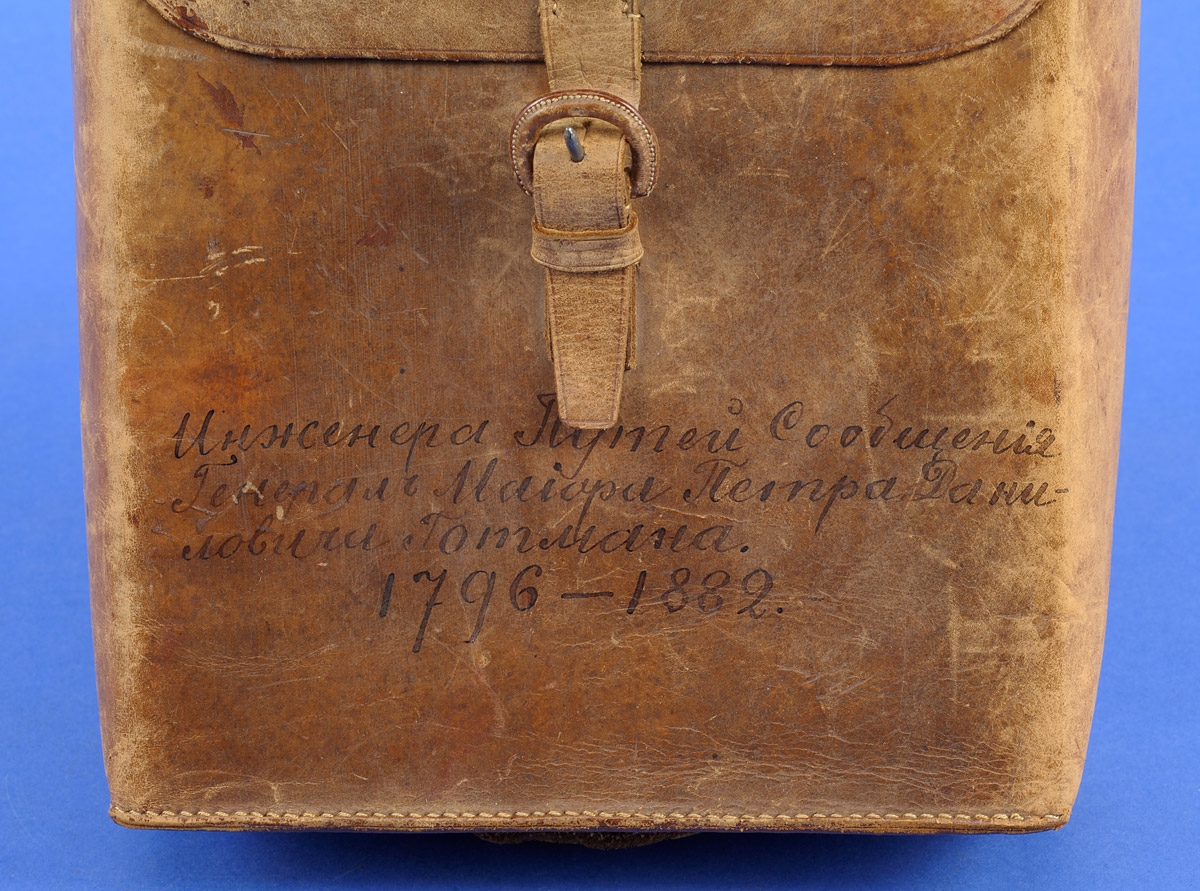 Инженера Путей Сообщенія
Генералъ Маіора Петра Дани-
ловича Готмана.
1796 – 1882.